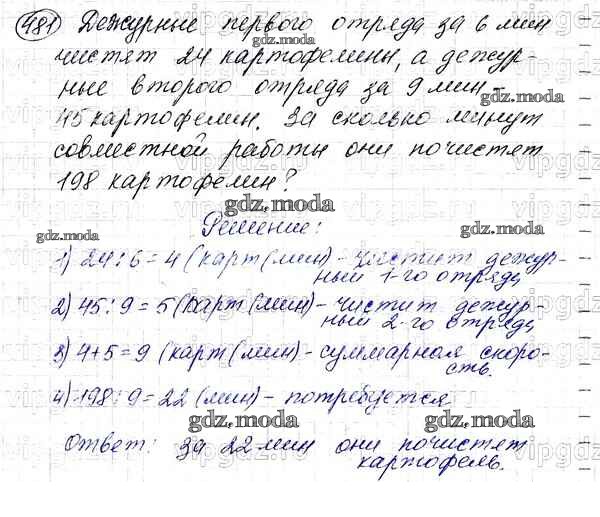 481 Дежурные первого отряда за 6 мин
чистят 24 картофелины, а дежур-
ные второго отряда за 9 мин -
gdz.moda
45 картофелин. За сколько минут
совместной работы они почистят
198 картофелин?
gdz.moda
gdz.moda
Решение:
gdz.moda
1) 24:6=4 (карт(мин) - чистит дежур-
ный 1-го отряда
2) 45:9=5 (карт(мин) - чистит дежур-
ный 2-го отряда
3) 4+5=9 (карт(мин) - суммарная скоро-
сть.
4) 198:9=22 (мин) - потребуется
gdz.moda
Ответ: за 22 мин они почистят
картофель.
gdz.moda